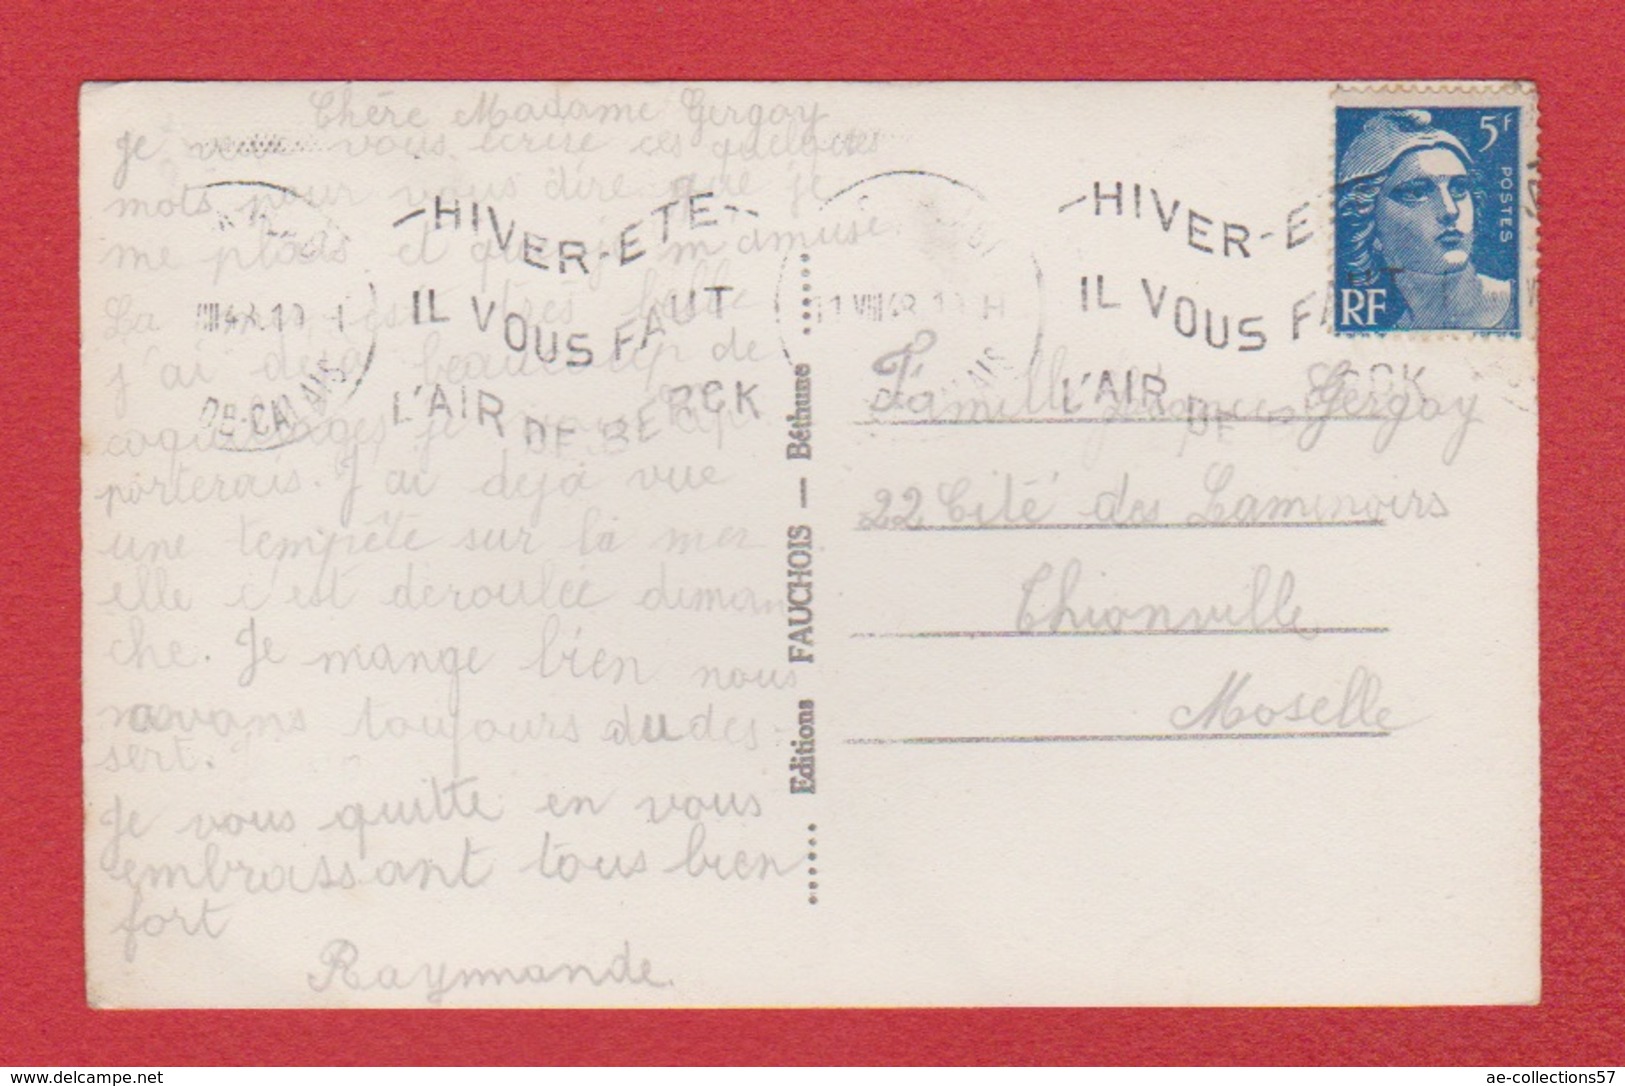 Chère Madame Gergoy
Je veux vous écrire ces quelques
mots pour vous dire que je
me plais et que je m'amuse.
La mer est très belle
j'ai déjà beaucoup de
coquillages je vous
porterais. J'ai déjà vue
une tempête sur la mer
elle c'est déroulée diman
che. Je mange bien nous
avons toujours du des-
sert.
Je vous quitte en vous
embrassant tous bien
fort
Raymonde.
HIVER-ETE
IL VOUS FAUT
L'AIR DE BERCK
DE-CALAIS
Editions FAUCHOIS — Béthune
11 VIII 48
HIVER-E
IL VOUS FAUT
L'AIR DE
5F
POSTES
RF
Famille Gergoy
22 Cité des Laminoirs
Thionville
Moselle
http://www.delcampe.net
ae-collections57